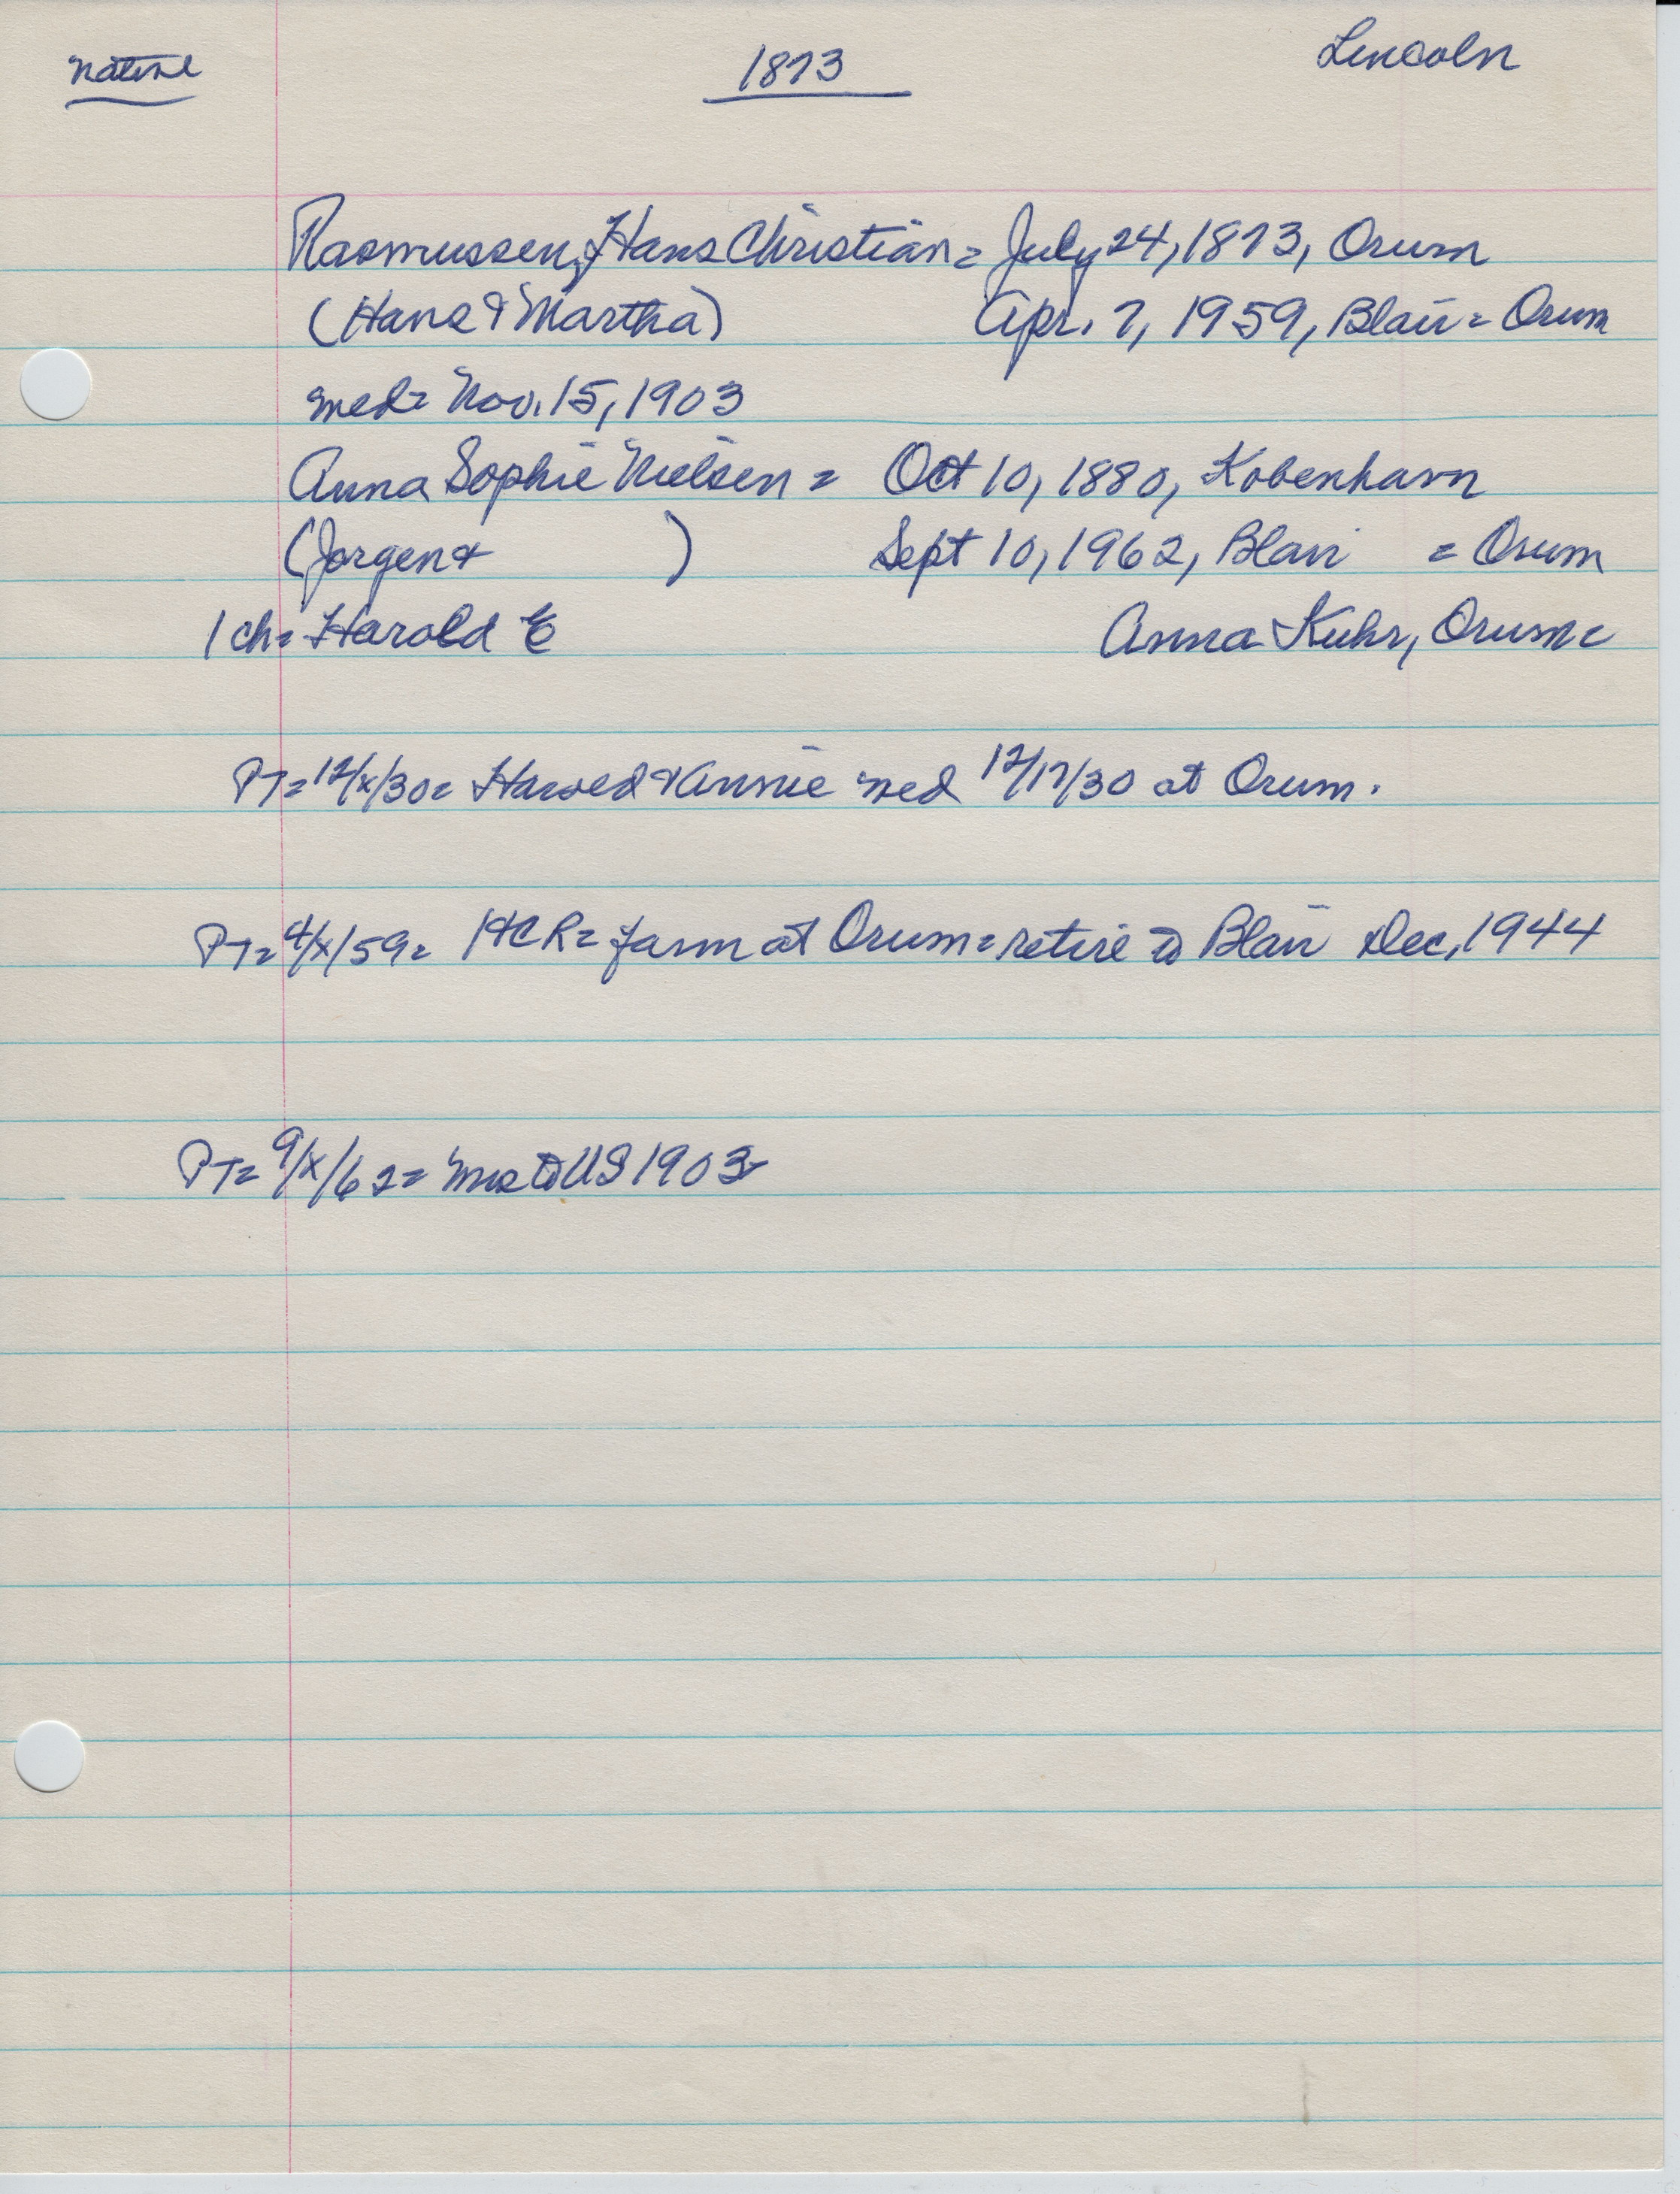 Native 1873 Lincoln
Rasmussen, Hans Christian = July 24, 1873, Orum
(Hans & Martha) Apr. 7, 1959, Blair = Orum
med = Nov. 15, 1903
Anna Sophie Nielsen = Oct 10, 1880, Kobenhavn
(Jorgen & ) Sept 10, 1962, Blair = Orum
1 ch = Harold E Anna Kuhr, Orum =
PT = 12/x/30 = Harold & Annie med 12/17/30 at Orum.
PT = 4/x/59 = HCR = farm at Orum = retire to Blair Dec, 1944
PT = 9/x/62 = Mrs to US 1903